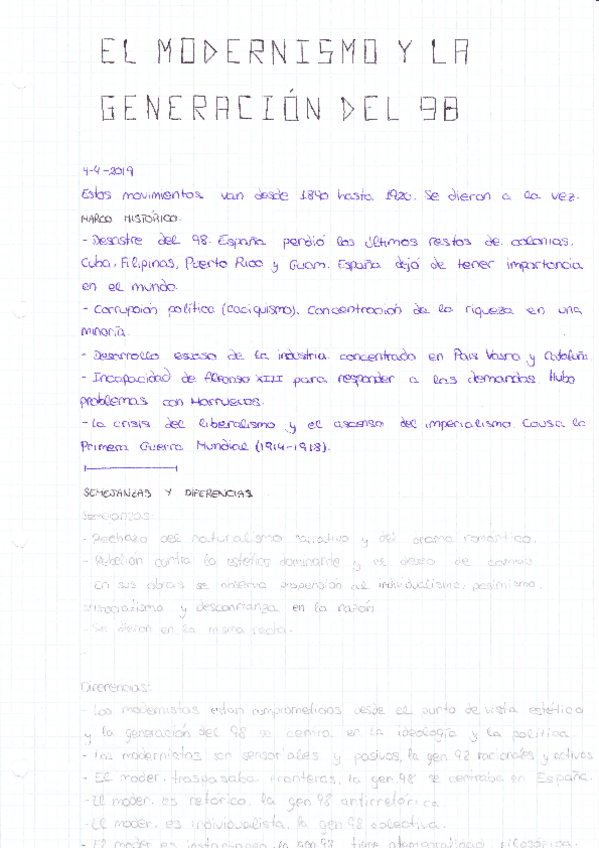 EL MODERNISMO Y LA
GENERACIÓN DEL 98
4-4-2019
Estos movimientos van desde 1840 hasta 1920. Se dieron a la vez.
MARCO HISTÓRICO.
- Desastre del 98. España perdió los últimos restos de colonias.
Cuba, Filipinas, Puerto Rico y Guam. España dejó de tener importancia
en el mundo.
- Corrupción política (caciquismo). Concentración de la riqueza en una
minoría.
- Desarrollo escaso de la industria. concentrado en País Vasco y Cataluña.
- Incapacidad de Alfonso XIII para responder a las demandas. Hubo
problemas con Marruecos.
- La crisis del liberalismo y el ascenso del imperialismo. Causa la
Primera Guerra Mundial (1914-1918).
SEMEJANZAS Y DIFERENCIAS
Semejanzas:
- Rechazo del naturalismo narrativo y del drama romántico.
- Rebelión contra la estética dominante y el deseo de
En sus obras se observa propensión al individualismo, pesimismo,
y desconfianza en la razón
- en la misma
Diferencias:
- Los modernistas están comprometidos desde el punto de vista estético
y la generación del 98 se centra en la ideología y la política.
- Los modernistas son sensoriales y pasivos, la gen 98 racionales y activos
- El moder. traspasaba fronteras, la gen 98 se centraba en España.
- El moder. es retórico, la gen 98 antirretórica
- El moder. es individualista, la gen 98 colectiva.
- El moder es la gen 98 tiene atemporalidad filosófica.